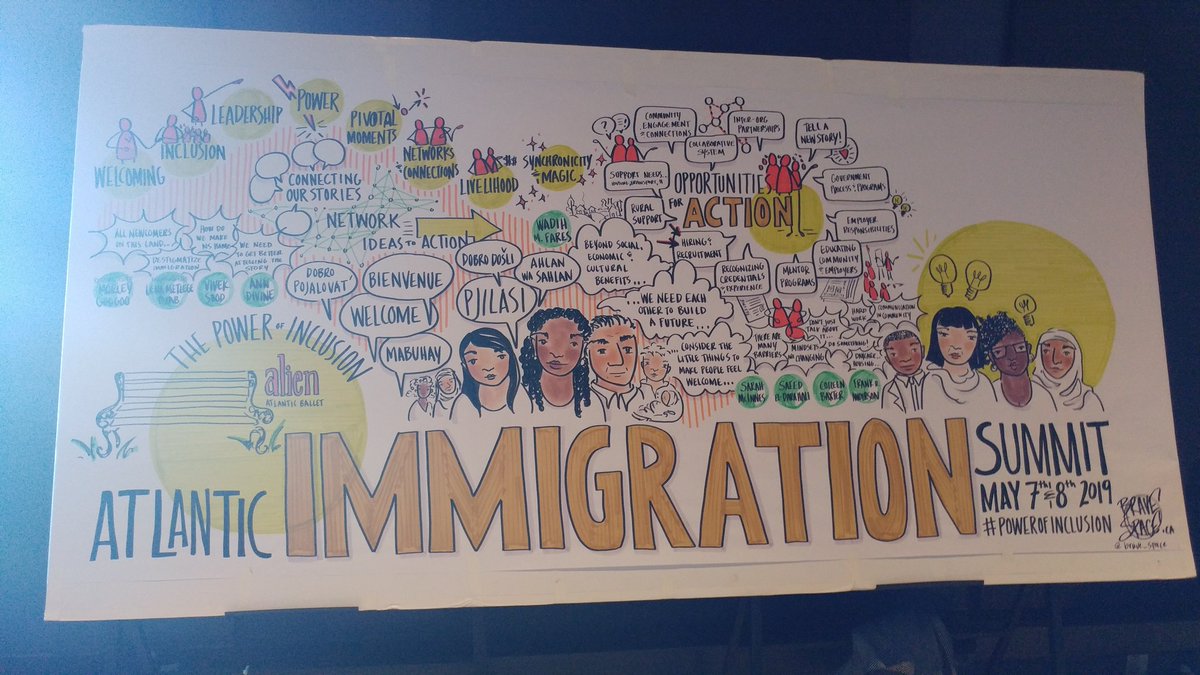 WELCOMING
INCLUSION
LEADERSHIP
POWER
PIVOTAL
MOMENTS
NETWORKS
CONNECTIONS
LIVELIHOOD
$$$
SYNCHRONICITY
MAGIC
CONNECTING
OUR STORIES
NETWORK
IDEAS TO ACTION
ALL NEWCOMERS
ON THIS LAND...
DESTIGMATIZE
IMMIGRATION
HOW DO
WE MAKE
WE NEED
TO GET BETTER
AT TELLING THE
STORY
VIVEK
SOOD
ANN
DIVINE
DOBRO
POJALOVAT
BIENVENUE
WELCOME
MABUHAY
DOBRO DOŠLI
PJILASI
AHLAN
WA SAHLAN
WADIH
M. FARES
BEYOND SOCIAL,
ECONOMIC &
CULTURAL
BENEFITS...
...WE NEED EACH
OTHER TO BUILD
A FUTURE...
...CONSIDER THE
LITTLE THINGS TO
MAKE PEOPLE FEEL
WELCOME...
OPPORTUNITIES
FOR
ACTION
? !
COMMUNITY
ENGAGEMENT
& CONNECTIONS
COLLABORATIVE
SYSTEM
INTER-ORG
PARTNERSHIPS
TELL A
NEW STORY!
SUPPORT NEEDS
RURAL
SUPPORT
GOVERNMENT
PROCESS & PROGRAMS
EMPLOYER
RESPONSIBILITIES
HIRING &
RECRUITMENT
RECOGNIZING
CREDENTIALS
& EXPERIENCE
MENTOR
PROGRAMS
EDUCATING
COMMUNITY
& EMPLOYERS
THERE ARE
MANY
BARRIERS
MINDSETS
CHANGING
DON'T JUST
TALK ABOUT
IT...
DO SOMETHING!
HARD
WORK
COMMUNICATION
COMMUNITY
SARAH
McINNES
SAEED
COLLEEN
BAXTER
FRANK
ANDERSON
THE POWER OF INCLUSION
alien
ATLANTIC BALLET
ATLANTIC
IMMIGRATION
SUMMIT
MAY 7th & 8th 2019
#POWEROFINCLUSION
BRAVE
SPACE.CA
@brave_space